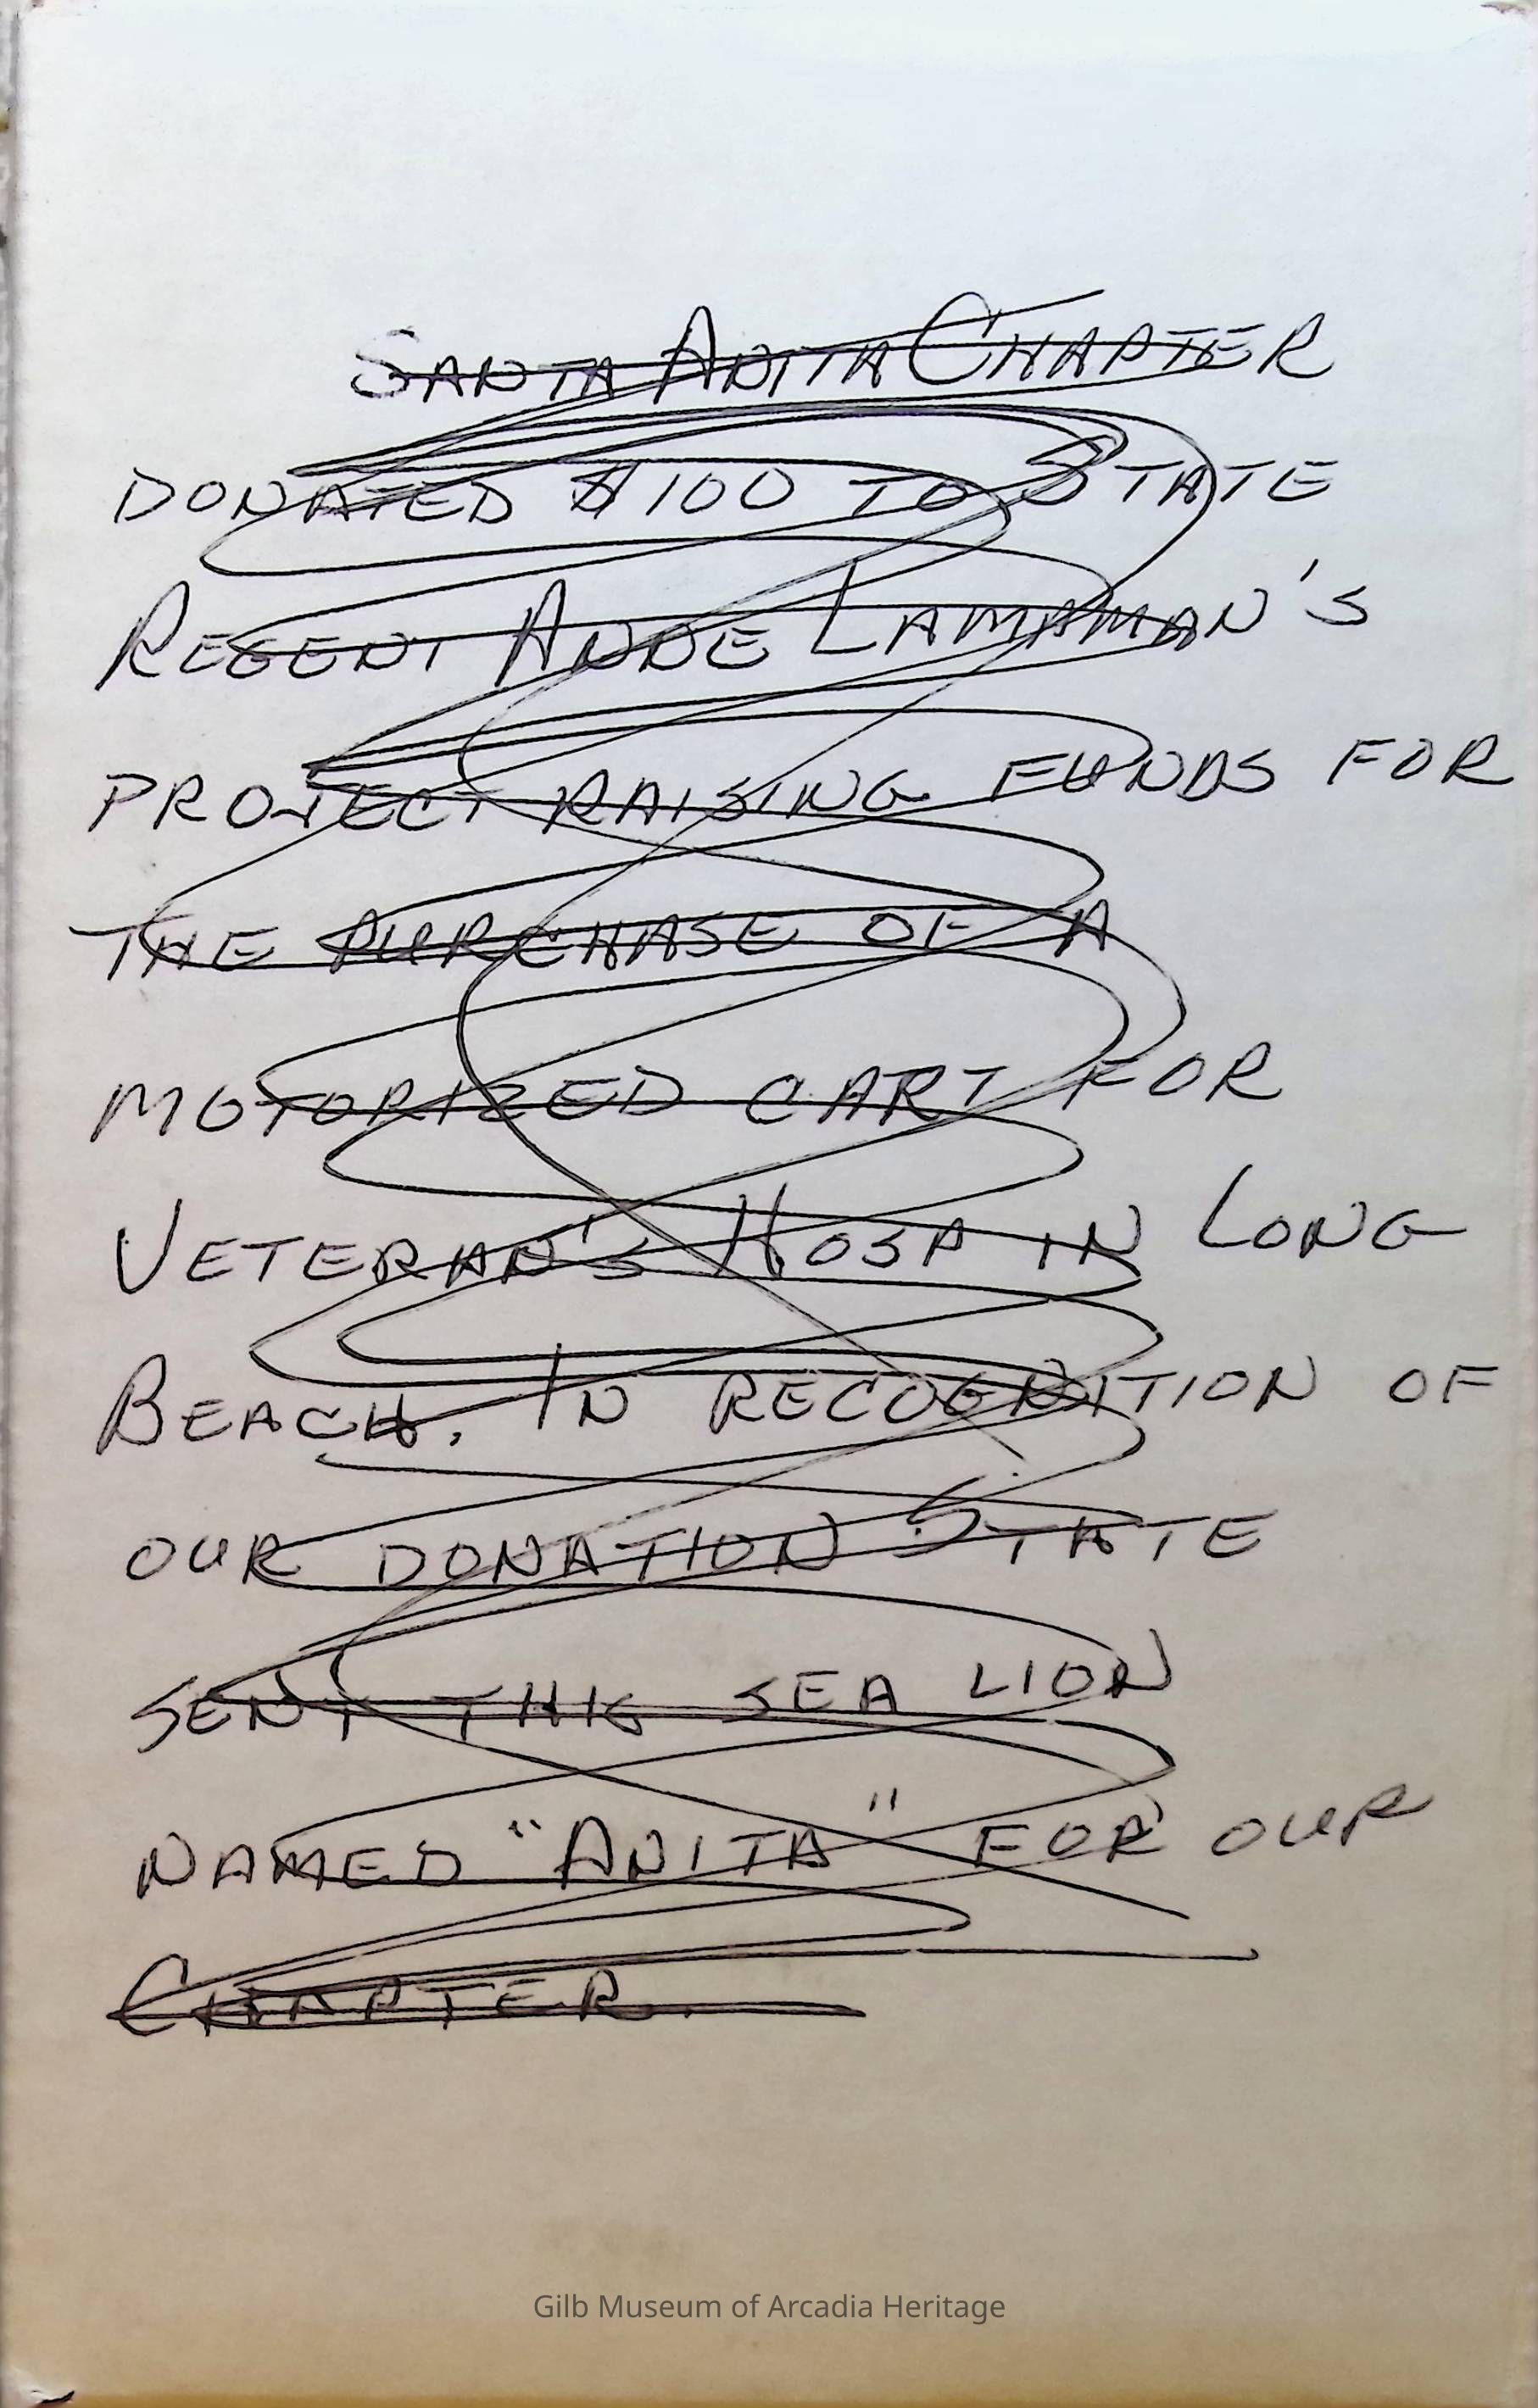 Santa Anita Chapter
donated $100 to State
Regent Anne Lampman's
project raising funds for
the purchase of a
motorized cart for
Veteran's Hosp in Long
Beach. In recognition of
our donation State
sent this sea lion
named "Anita" for our
Chapter.
Gilb Museum of Arcadia Heritage